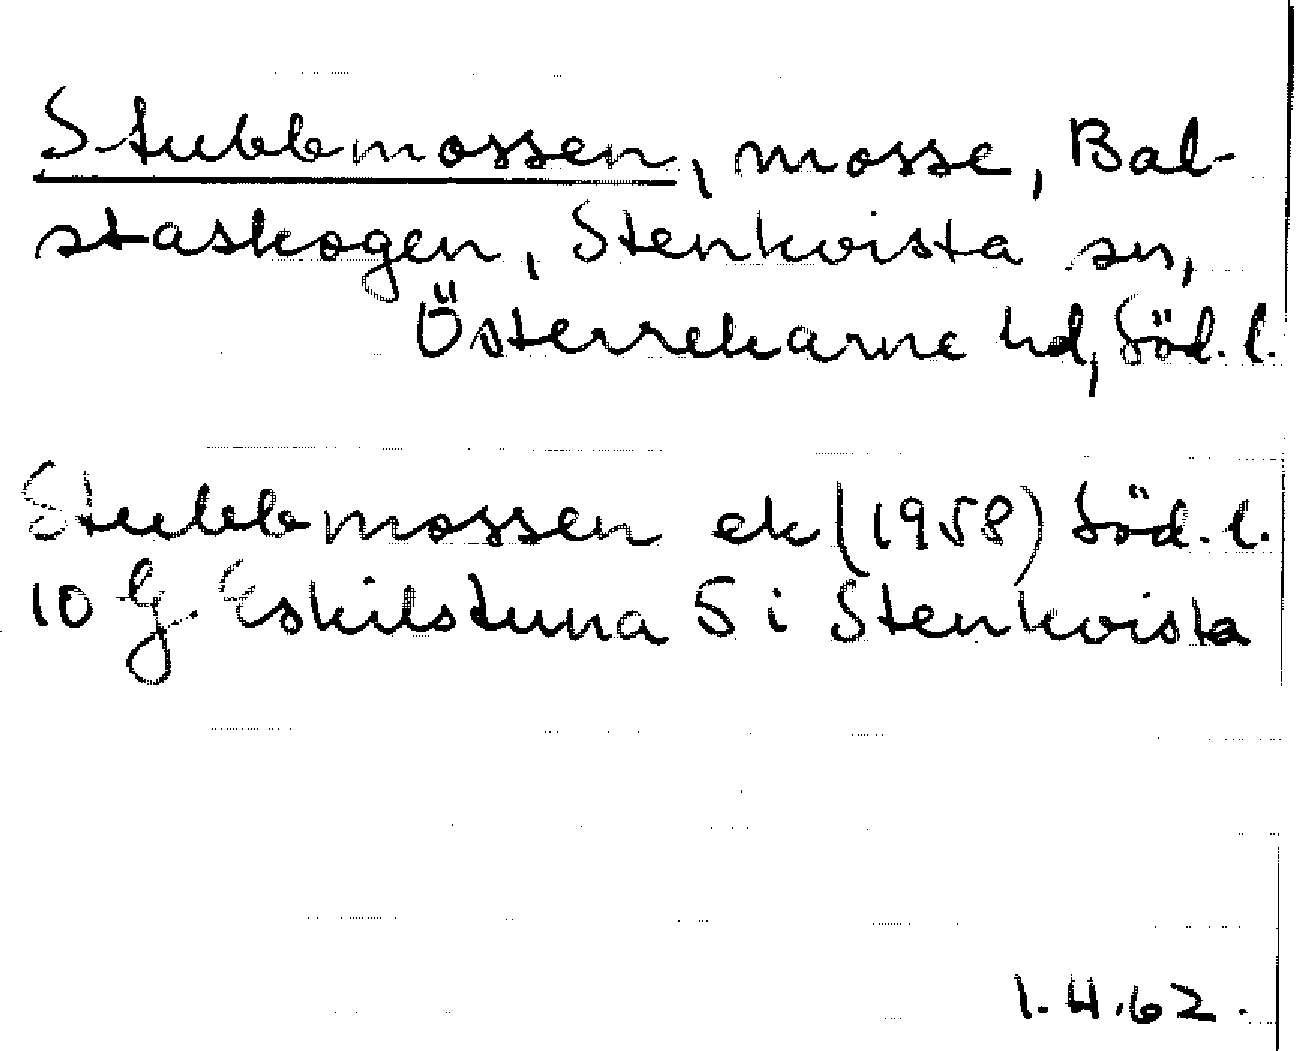 Stubbmossen, mosse, Bal-
staskogen, Stenkvista sn,
Österrekarne hd, Söd. l.
Stubbmossen ek (1958) Söd. l.
10 G. Eskilstuna S i Stenkvista
1.4.62.